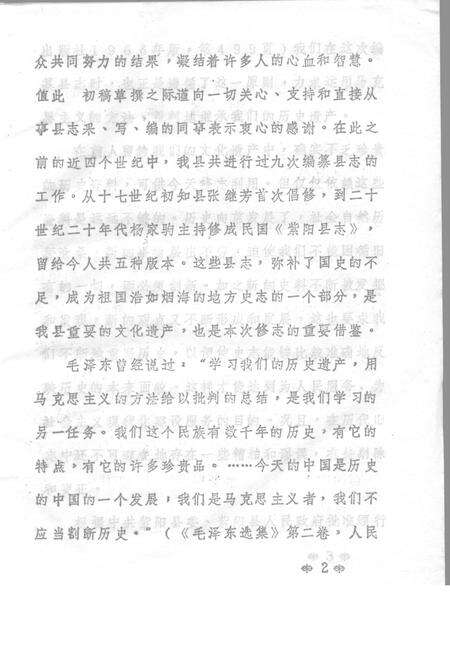 众共同努力的结果，凝结着许多人的心血和智慧。
值此 初稿草撰之际道向一切关心、支持和直接从
事县志采、写、编的同事表示衷心的感谢。在此之
前的近四个世纪中，我县共进行过九次编纂县志的
工作。从十七世纪初知县张继芳首次倡修，到二十
世纪二十年代杨家驹主持修成民国《紫阳县志》，
留给今人共五种版本。这些县志，弥补了国史的不
足，成为祖国浩如烟海的地方史志的一个部分，是
我县重要的文化遗产，也是本次修志的重要借鉴。
毛泽东曾经说过：“学习我们的历史遗产，用
马克思主义的方法给以批判的总结，是我们学习的
另一任务。我们这个民族有数千年的历史，有它的
特点，有它的许多珍贵品。……今天的中国是历史
的中国的一个发展，我们是马克思主义者，我们不
应当割断历史。”（《毛泽东选集》第二卷，人民
2